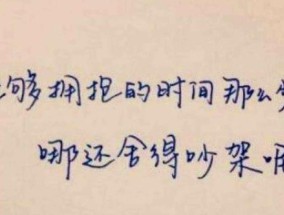 够拥抱的时间那么
哪还舍得吵架